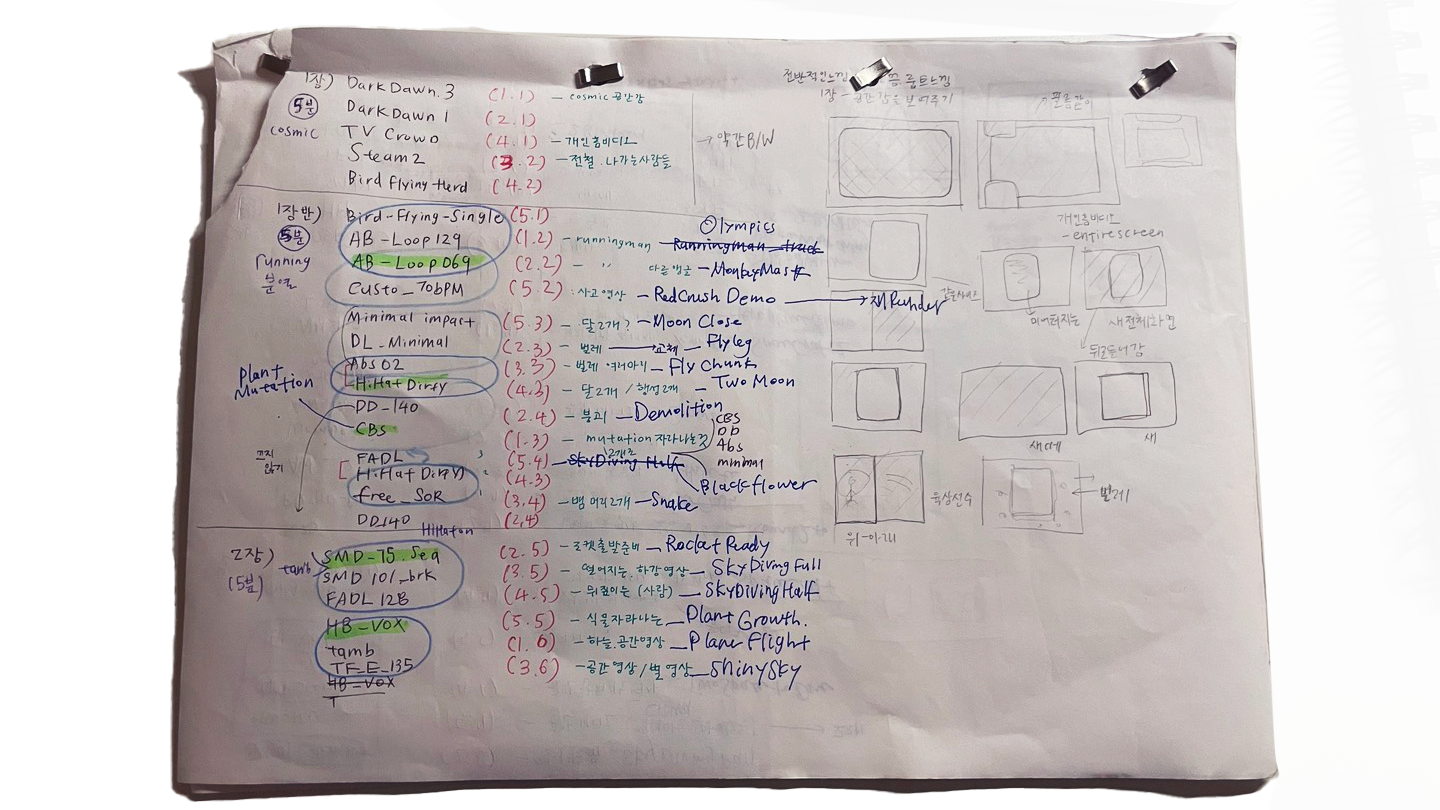 1장) Dark Dawn. 3 (1.1) — cosmic 공간감
5분 Dark Dawn 1 (2.1)
cosmic TV Crowd (4.1) — 개인홈비디오 → 약간 B/W
Steam 2 (3.2) — 전철. 나가는사람들
Bird Flying Herd (4.2)
1장반) Bird-Flying-Single (5.1)
Olympics
5분 AB-Loop 129 (1.2) — runningman Runningman_track
running AB-Loop 069 (2.2) — " 다른앵글 — MonkeyMask
Custo_70bPM (5.2) : 사고영상 — RedCrush Demo → Runner
Minimal impact (5.3) — 달2개? — Moon Close
DL_Minimal (2.3) — 벌레 — 교체 — Flyleg
Abs 02 (3.3) — 벌레 여러마리 — Fly Chunk
Plant Mutation
HiHat Dirty (4.3) — 달2개 / 행성2개 — Two Moon
DD-140 (2.4) — 붕괴 — Demolition
CBS (1.3) — mutation 자라나는것
2개로
CBS
DD
Abs
minimal
끄지
않기
FADL (5.4) — SkyDiving Half
HiHat Dirty (4.3)
Blackflower
free_SOR (3.4) — 뱀 머리2개 — Snake
DD140 (2.4)
HiHaton
2장) tamb SMD-75.Seq (2.5) — 로켓출발준비 — Rocket Ready
(5분) SMD 101_brk (3.5) — 떨어지는, 하강영상 — SkyDiving Full
FADL 12B (4.5) — 뒤집이는 (사람) — SkyDivingHalf
HB_VOX (5.5) — 식물자라나는 — Plant Growth.
tamb (1.6) — 하늘.공간영상 — Plane Flight
TF_E_135 (3.6) — 공간영상 / 별영상 — ShinySky
HB_VOX
T
전반적인느낌 룹트느낌
1장 — 공간감을보여주기
필름같이
개인홈비디오
- entirescreen
같은사이즈
이어터지는
새전체화면
뒤로들어감
새떼
새
위-아래
육상선수
벌레